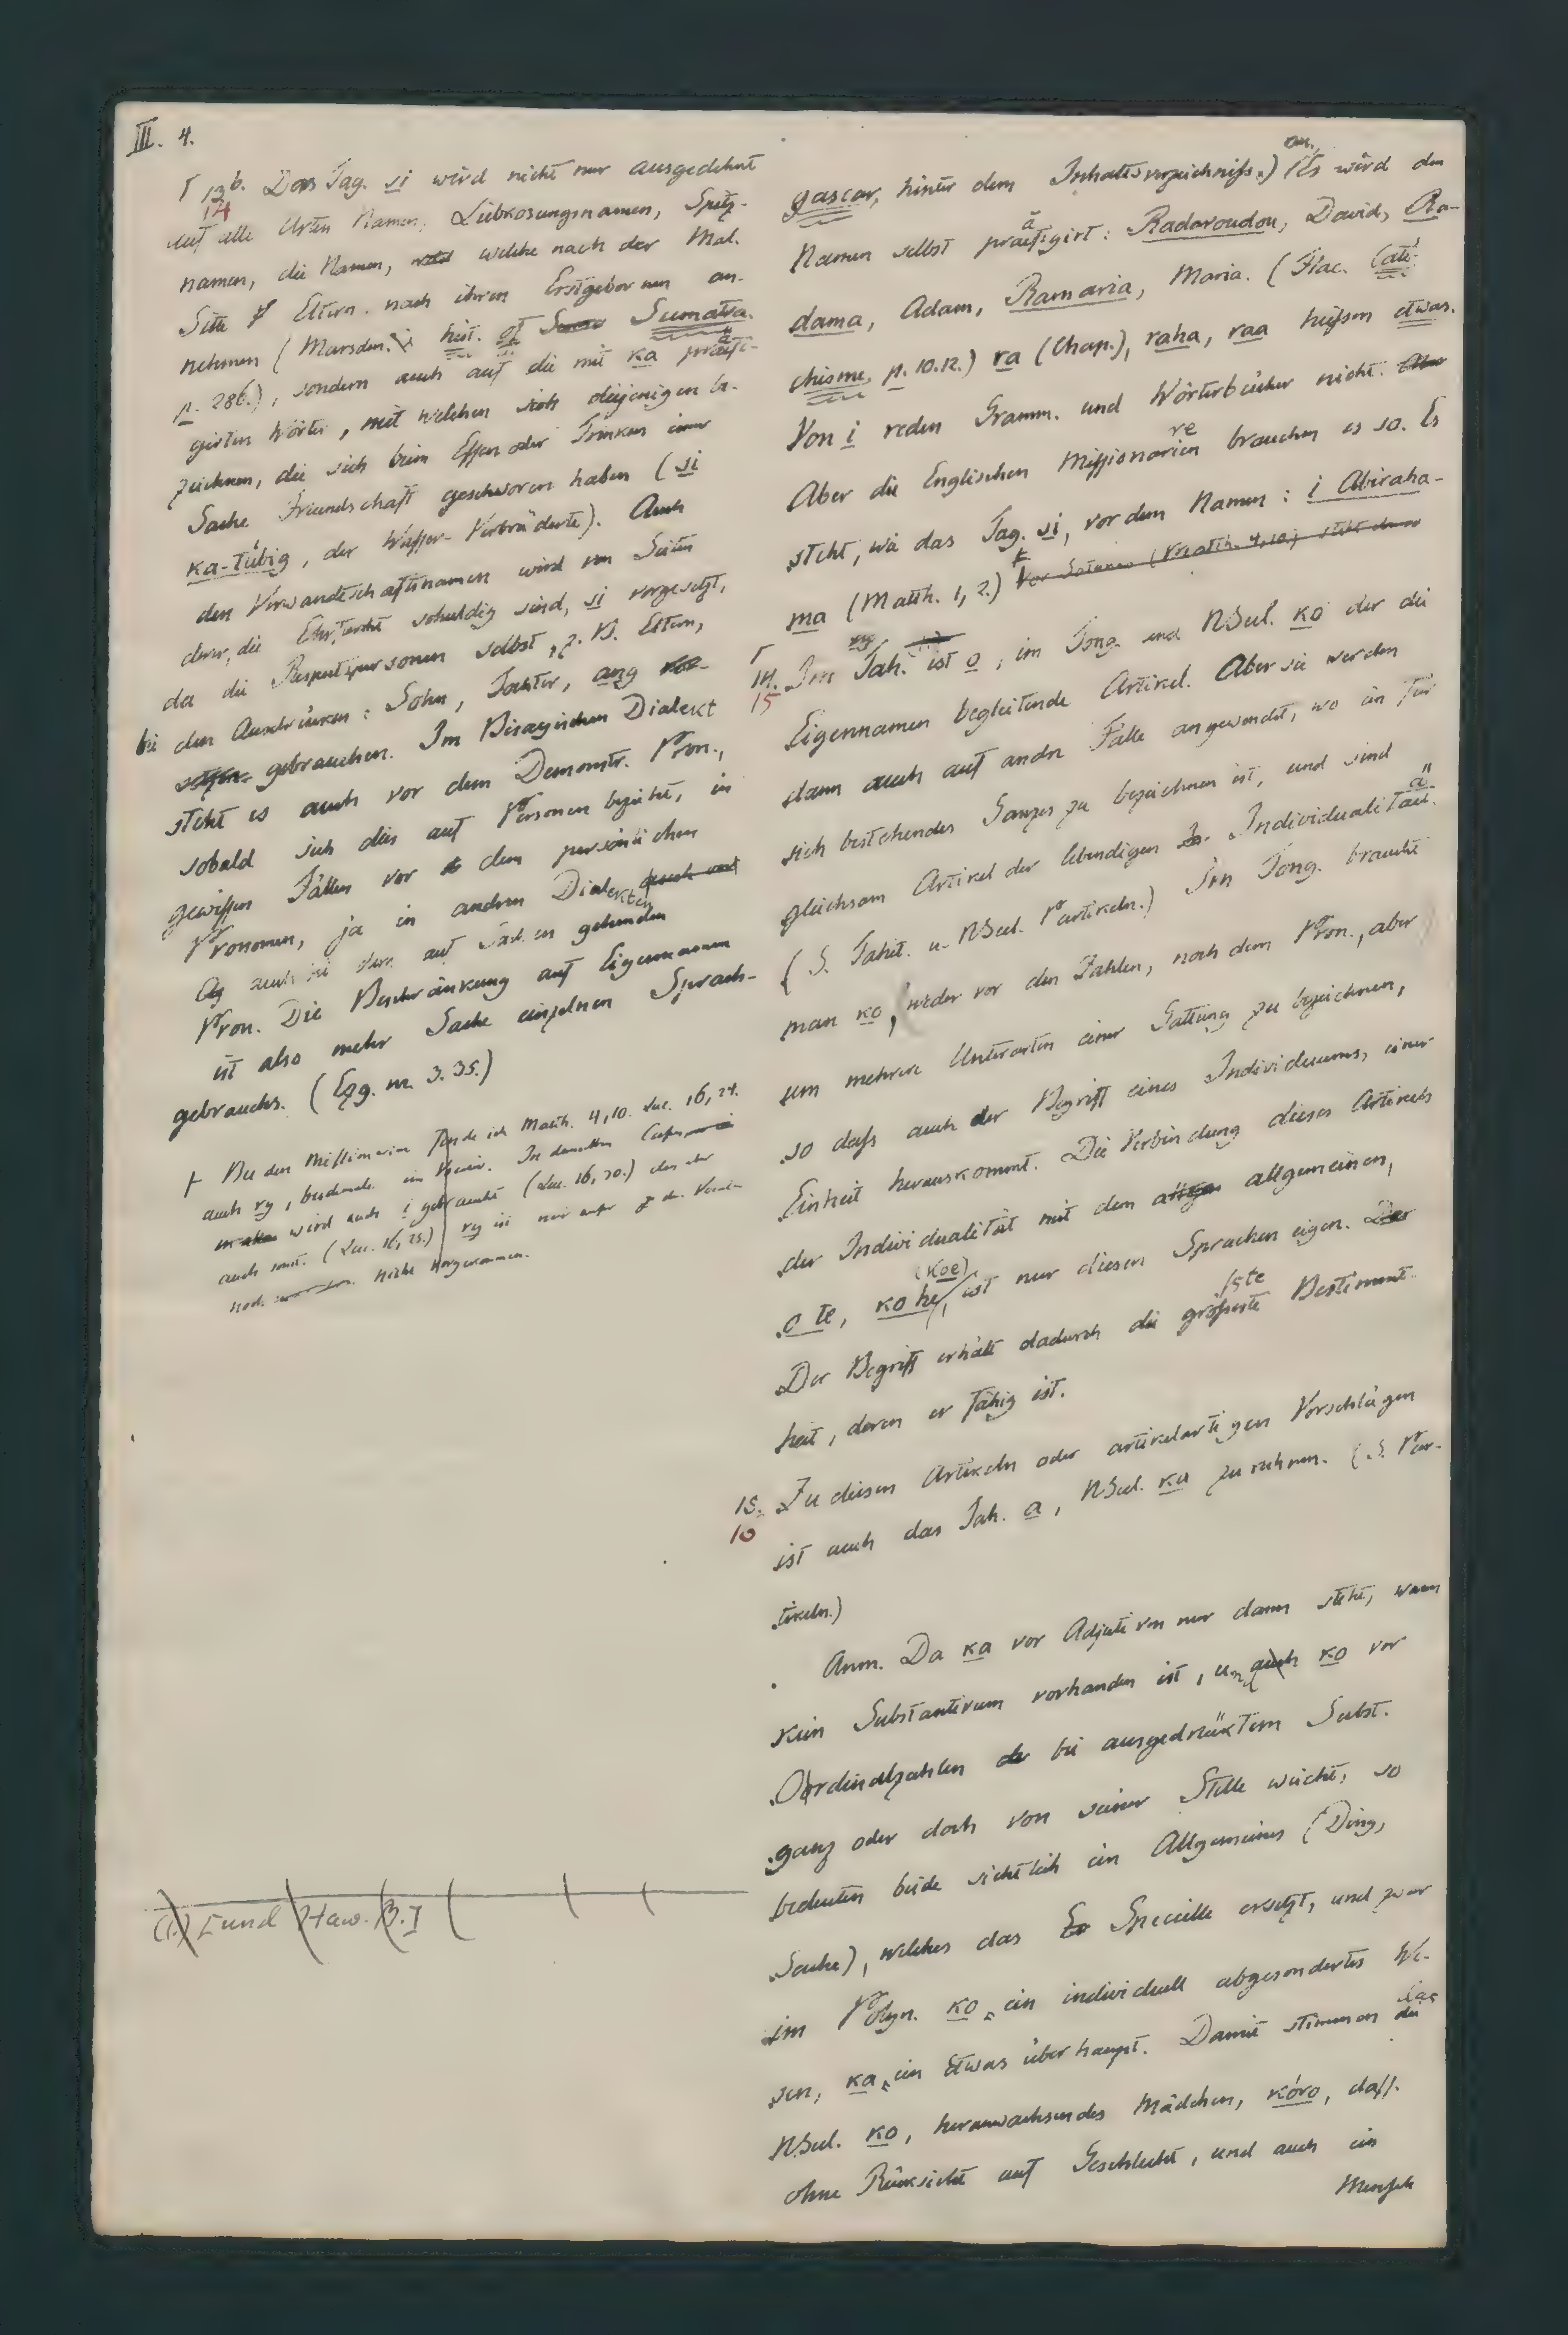 III. 4.
13b. Das Tag. si wird nicht nur ausgedehnt
14
auf alle Arten Namen, Liebkosungsnamen, Spitz-
namen, die Namen, welche nach der Mal.
Sitte Eltern nach ihren Erstgebornen an-
nehmen (Marsden. hist. of Sumatra.
p. 286.), sondern auch auf die mit ka präfi-
girten Wörter, mit welchen sich diejenigen be-
zeichnen, die sich beim Essen oder Trinken einer
Sache Freundschaft geschworen haben (si
ka-tübig, der Wasser-Verbrüderte). Auch
den Verwandtschaftsnamen wird von Seiten
derer, die Ehrfurcht schuldig sind, si vorgesetzt,
da die Respectspersonen selbst, z. B. Eltern,
bei den Ausdrücken: Sohn, Tochter, ang
gebrauchen. Im Bisayischen Dialect
steht es auch vor dem Demonstr. Pron.,
sobald sich dies auf Personen bezieht, in
gewissen Fällen vor dem persönlichen
Pronomen, ja in andren Dialekten
auch bei dem auf Sachen gehenden
Pron. Die Beschränkung auf Eigennamen
ist also mehr Sache einzelnen Sprach-
gebrauchs. (Ezg. nr. 3. 35.)
Bei den Missionarien finde ich Matth. 4, 10. Luc. 16, 24.
auch ry, beidemale im Vocativ. In demselben
wird auch i gebraucht (Luc. 16, 30.)
auch sonst. (Luc. 16, 25.) ry ist mir außer
noch nicht vorgekommen.
(1.) [und Haw. B. I
gascar, hinter dem Inhaltsverzeichniß.) an. Es wird den
Namen selbst präfigirt: Radavoudou, David, Ra-
dama, Adam, Ramaria, Maria. (Flac. Caté-
chisme, p. 10. 12.) ra (Chap.), raha, raa heißen etwas.
Von i reden Gramm. und Wörterbücher nicht.
Aber die Englischen Missionarien brauchen es so. Es
steht, wie das Tag. si, vor dem Namen: i Abiraha-
ma (Matth. 1, 2.)
14. Im Tah. ist o, im Tong. und NSeel. ko der die
15
Eigennamen begleitende Artikel. Aber sie werden
dann auch auf andre Fälle angewendet, wo ein für
sich bestehendes Ganzes zu bezeichnen ist, und sind
gleichsam Artikel der lebendigen Individualität.
(S. Tahit. u. NSeel. Partikeln.) Im Tong. braucht
man ko, weder vor den Zahlen, noch dem Pron., aber
um mehrere Unterarten einer Gattung zu bezeichnen,
so daß auch der Begriff eines Individuums, einer
Einheit herauskommt. Die Verbindung dieses Artikels
der Individualität mit dem allgemeinen,
o te, ko he, (koe) ist nur diesen Sprachen eigen.
Der Begriff erhält dadurch die größeste Bestimmt-
heit, deren er fähig ist.
15. Zu diesen Artikeln oder artikelartigen Vorschlägen
16
ist auch das Tah. a, NSeel. ka zu rechnen. (S. Par-
tikeln.)
Anm. Da ka vor Adjectiven nur dann steht, wenn
kein Substantivum vorhanden ist, und ko vor
Ordinalzahlen bei ausgedrücktem Subst.
ganz oder doch von seiner Stelle weicht, so
bedeuten beide sichtlich ein Allgemeines (Ding,
Sache), welches das Specielle ersetzt, und zwar
im Polyn. ko ein individuell abgesondertes We-
sen, ka ein Etwas überhaupt. Damit stimmen das
NSeel. ko, heranwachsendes Mädchen, kóro, dass.
ohne Rücksicht auf Geschlecht, und auch ein
Mensch